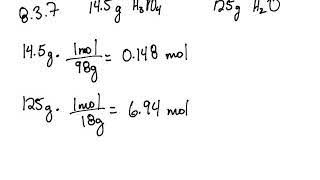 8.3.7 14.5g H₃PO₄ 125g H₂O
14.5g · 1mol/98g = 0.148 mol
125g · 1mol/18g = 6.94 mol